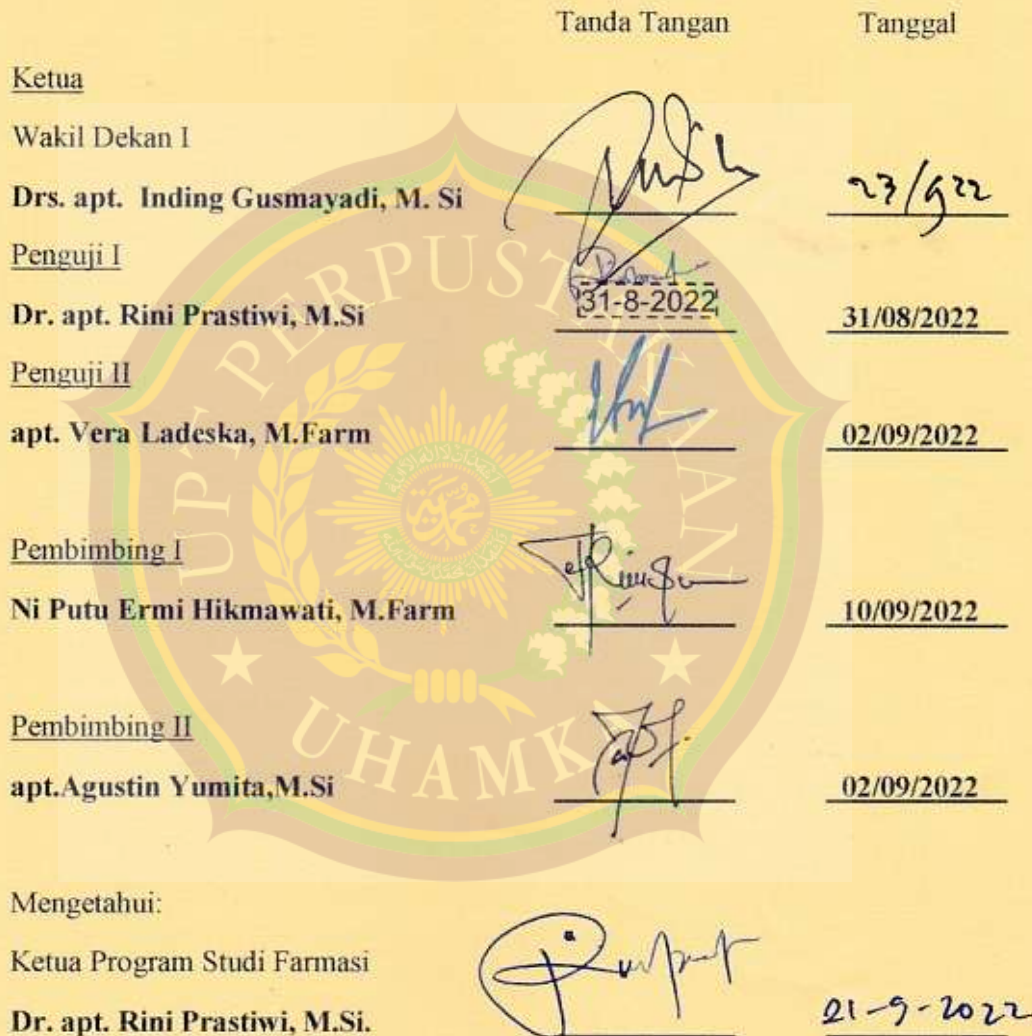 Tanda Tangan Tanggal
Ketua
Wakil Dekan I
Drs. apt. Inding Gusmayadi, M. Si 23/922
Penguji I
31-8-2022
Dr. apt. Rini Prastiwi, M.Si 31/08/2022
Penguji II
apt. Vera Ladeska, M.Farm 02/09/2022
Pembimbing I
Ni Putu Ermi Hikmawati, M.Farm 10/09/2022
Pembimbing II
apt.Agustin Yumita,M.Si 02/09/2022
Mengetahui:
Ketua Program Studi Farmasi
Dr. apt. Rini Prastiwi, M.Si. 21-9-2022
UPT PERPUSTAKAAN
UHAMKA